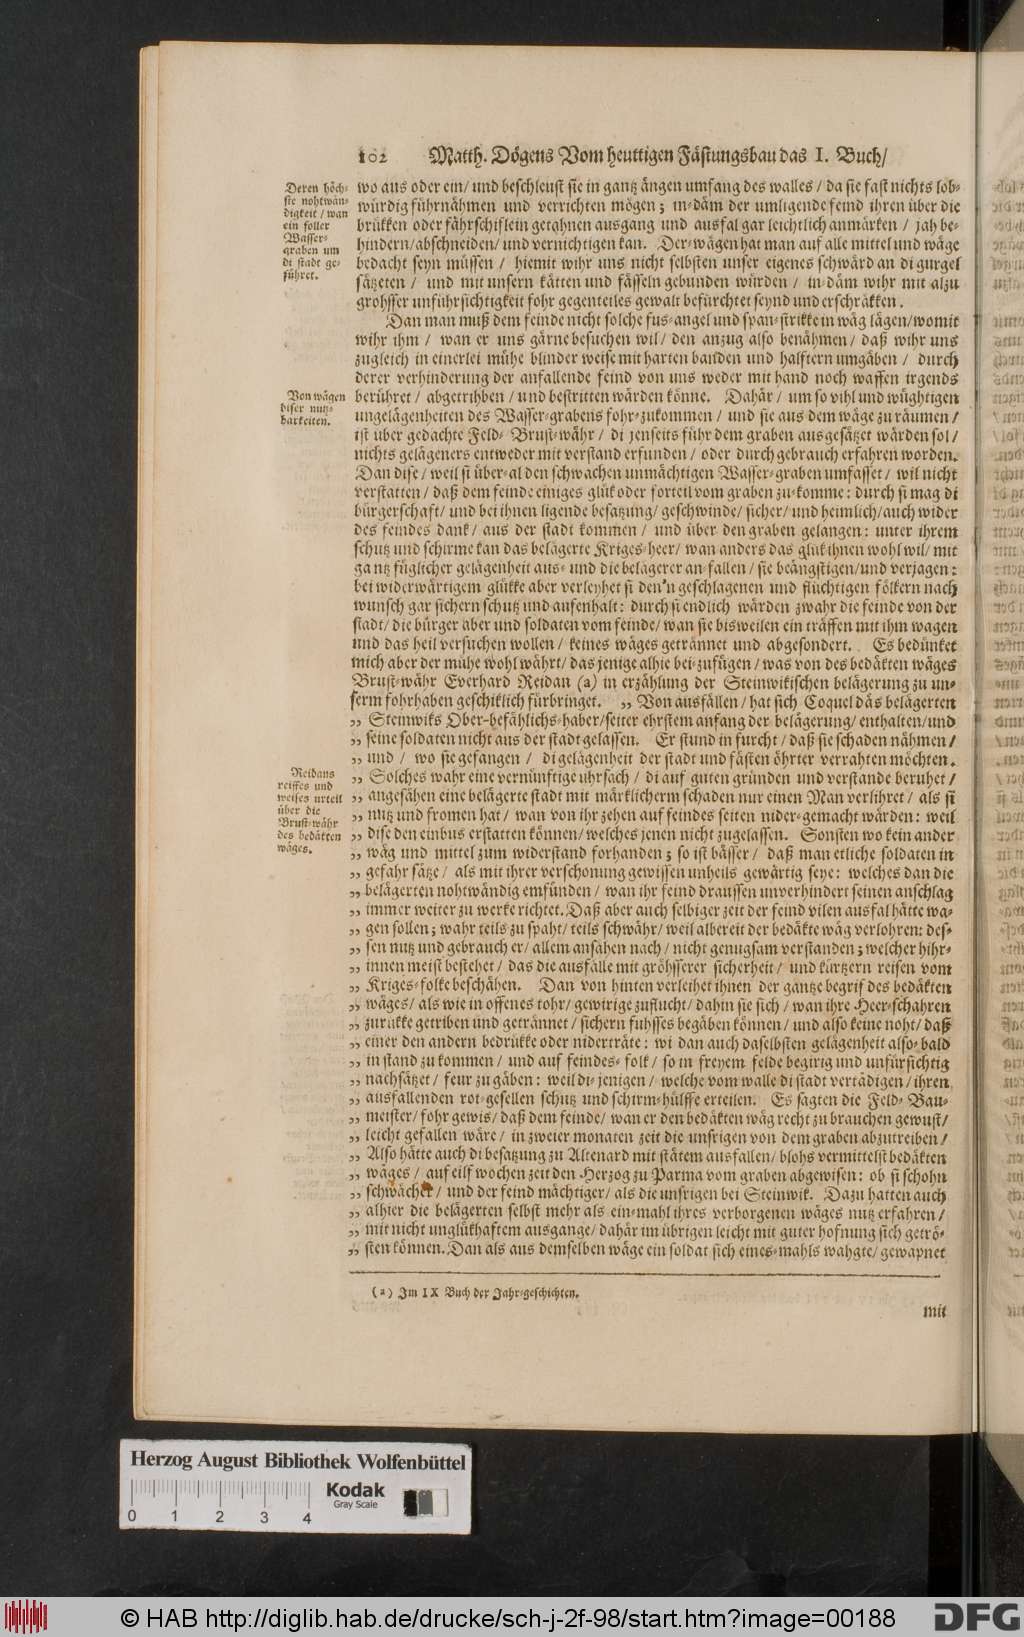 102 Matth. Dögens Vom heuttigen Fästungsbau das I. Buch/
Deren höch-
ste nohtwän-
digkeit / wan
ein foller
Wasser-
graben um
di stadt ge-
führet.
wo aus oder ein/ und beschleust sie in gantz ängen umfang des walles / da sie fast nichts lob-
würdig führnähmen und verrichten mögen; in-däm der umligende feind ihren über die
brükken oder fährschiflein getahnen ausgang und ausfal gar leichtlich anmärken / jah be-
hindern/abschneiden/ und vernichtigen kan. Der-wägen hat man auf alle mittel und wäge
bedacht seyn müssen / hiemit wihr uns nicht selbsten unser eigenes schwärd an di gurgel
sätzeten / und mit unsern kätten und fässeln gebunden würden / in däm wihr mit alzu
grohsser unführsichtigkeit fohr gegenteiles gewalt befürchtet seynd und erschräkken.
Dan man muß dem feinde nicht solche fus-angel und span-strikke in wäg lägen/womit
wihr ihm / wan er uns gärne besuchen wil/ den anzug also benähmen/ daß wihr uns
zugleich in einerlei mühe blinder weise mit harten banden und halftern umgäben / durch
derer verhinderung der anfallende feind von uns weder mit hand noch waffen irgends
Von wägen
diser nutz-
barkeiten.
berühret / abgetrihben / und bestritten wärden könne. Dahär/ um so vihl und wüghtigen
ungelägenheiten des Wasser-grabens fohr-zukommen / und sie aus dem wäge zu räumen/
ist über gedachte Feld- Brust-währ / di jenseits führ dem graben ausgesätzet wärden sol/
nichts gelägeners entweder mit verstand erfunden / oder durch gebrauch erfahren worden.
Dan dise / weil si über-al den schwachen unmächtigen Wasser-graben umfasset / wil nicht
verstatten / daß dem feinde einiges glük oder forteil vom graben zu-komme: durch si mag di
bürgerschaft/ und bei ihnen ligende besatzung/ geschwinde/ sicher/ und heimlich/auch wider
des feindes dank/ aus der stadt kommen / und über den graben gelangen: unter ihrem
schutz und schirme kan das belägerte Kriges-heer/ wan anders das glük ihnen wohl wil/ mit
gantz füglicher gelägenheit aus- und die belägerer an-fallen / sie beängstigen/und verjagen:
bei widerwärtigem glükke aber verleyhet si den'n geschlagenen und flüchtigen fölkern nach
wunsch gar sichern schutz und aufenhalt: durch si endlich wärden zwahr die feinde von der
stadt/ die bürger aber und soldaten vom feinde/ wan sie bisweilen ein träffen mit ihm wagen
und das heil versuchen wollen / keines wäges getrännet und abgesondert. Es bedünket
mich aber der mühe wohl währt / das jenige alhie bei-zufügen / was von des bedäkten wäges
Brust-währ Everhard Reidan (a) in erzählung der Steinwikischen belägerung zu un-
serm fohrhaben geschiklich fürbringet. „ Von ausfällen/ hat sich Coquel däs belägerten
„ Steinwiks Ober-befählichs-haber/seiter ehrstem anfang der belägerung/ enthalten/und
„ seine soldaten nicht aus der stadt gelassen. Er stund in furcht/ daß sie schaden nähmen/
„ und / wo sie gefangen / di gelägenheit der stadt und fästen öhrter verrahten möchten.
Reidans
reiffes und
weises urteil
über die
Brust-währ
des bedäkten
wäges.
„ Solches wahr eine vernünftige uhrsach/ di auf guten gründen und verstande beruhet/
„ angesähen eine belägerte stadt mit märklicherm schaden nur einen Man verlihret/ als si
„ nutz und fromen hat/ wan von ihr zehen auf feindes seiten nider-gemacht würden: weil
„ dise den einbus erstatten können/welches jenen nicht zugelassen. Sonsten wo kein ander
„ wäg und mittel zum widerstand forhanden; so ist bässer/ daß man etliche soldaten in
„ gefahr sätze / als mit ihrer verschonung gewissen unheils gewärtig seye: welches dan die
„ belägerten nohtwändig emfünden/ wan ihr feind draussen unverhindert seinen anschlag
„ immer weiter zu werke richtet. Daß aber auch selbiger zeit der feind vilen ausfal hätte wa-
„ gen sollen; wahr teils zu spaht/ teils schwähr/ weil albereit der bedäkte wäg verlohren: des-
„ sen nutz und gebrauch er/ allem ansähen nach/ nicht genugsam verstanden; welcher hihr-
„ innen meist bestehet/ das die ausfälle mit gröhsserer sicherheit / und kürtzern reisen vom
„ Kriges-folke beschähen. Dan von hinten verleihet ihnen der gantze begrif des bedäkten
„ wäges/ als wie in offenes tohr/ gewirige zuflucht/ dahin sie sich/ wan ihre Heer-schahren
„ zurükke getriben und getrännet/ sichern fuhsses begäben können/ und also keine noht/ daß
„ einer den andern bedrükke oder nidertäte: wi dan auch daselbsten gelägenheit also-bald
„ in stand zu kommen / und auf feindes-folk/ so in freyem felde begirig und unfürsichtig
„ nachsätzet/ feur zu gäben: weil di-jenigen/ welche vom walle di stadt vertädigen/ ihren
„ ausfallenden rot-gesellen schutz und schirm-hülffe erteilen. Es sagten die Feld- Bau-
„ meister/ fohr gewis/ daß dem feinde/ wan er den bedäkten wäg recht zu brauchen gewust/
„ leicht gefallen wäre / in zweier monaten zeit die unsrigen von dem graben abzutreiben/
„ Also hätte auch di besatzung zu Altenard mit stätem ausfallen/ blohs vermittelst bedäkten
„ wäges / auf eilf wochen zeit den Herzog zu Parma vom graben abgewisen: ob si schohn
„ schwächer / und der feind mächtiger/ als die unsrigen bei Steinwik. Dazu hatten auch
„ alhier die belägerten selbst mehr als ein-mahl ihres verborgenen wäges nutz erfahren/
„ mit nicht unglükhaftem ausgange/ dahär im übrigen leicht mit guter hofnung sich getrö-
„ sten können. Dan als aus demselben wäge ein soldat sich eines-mahls wahgte/ gewapnet
(a) Im IX Buch der Jahr-geschichten.
mit
Herzog August Bibliothek Wolfenbüttel
Kodak
Gray Scale
0 1 2 3 4
© HAB http://diglib.hab.de/drucke/sch-j-2f-98/start.htm?image=00188
DFG